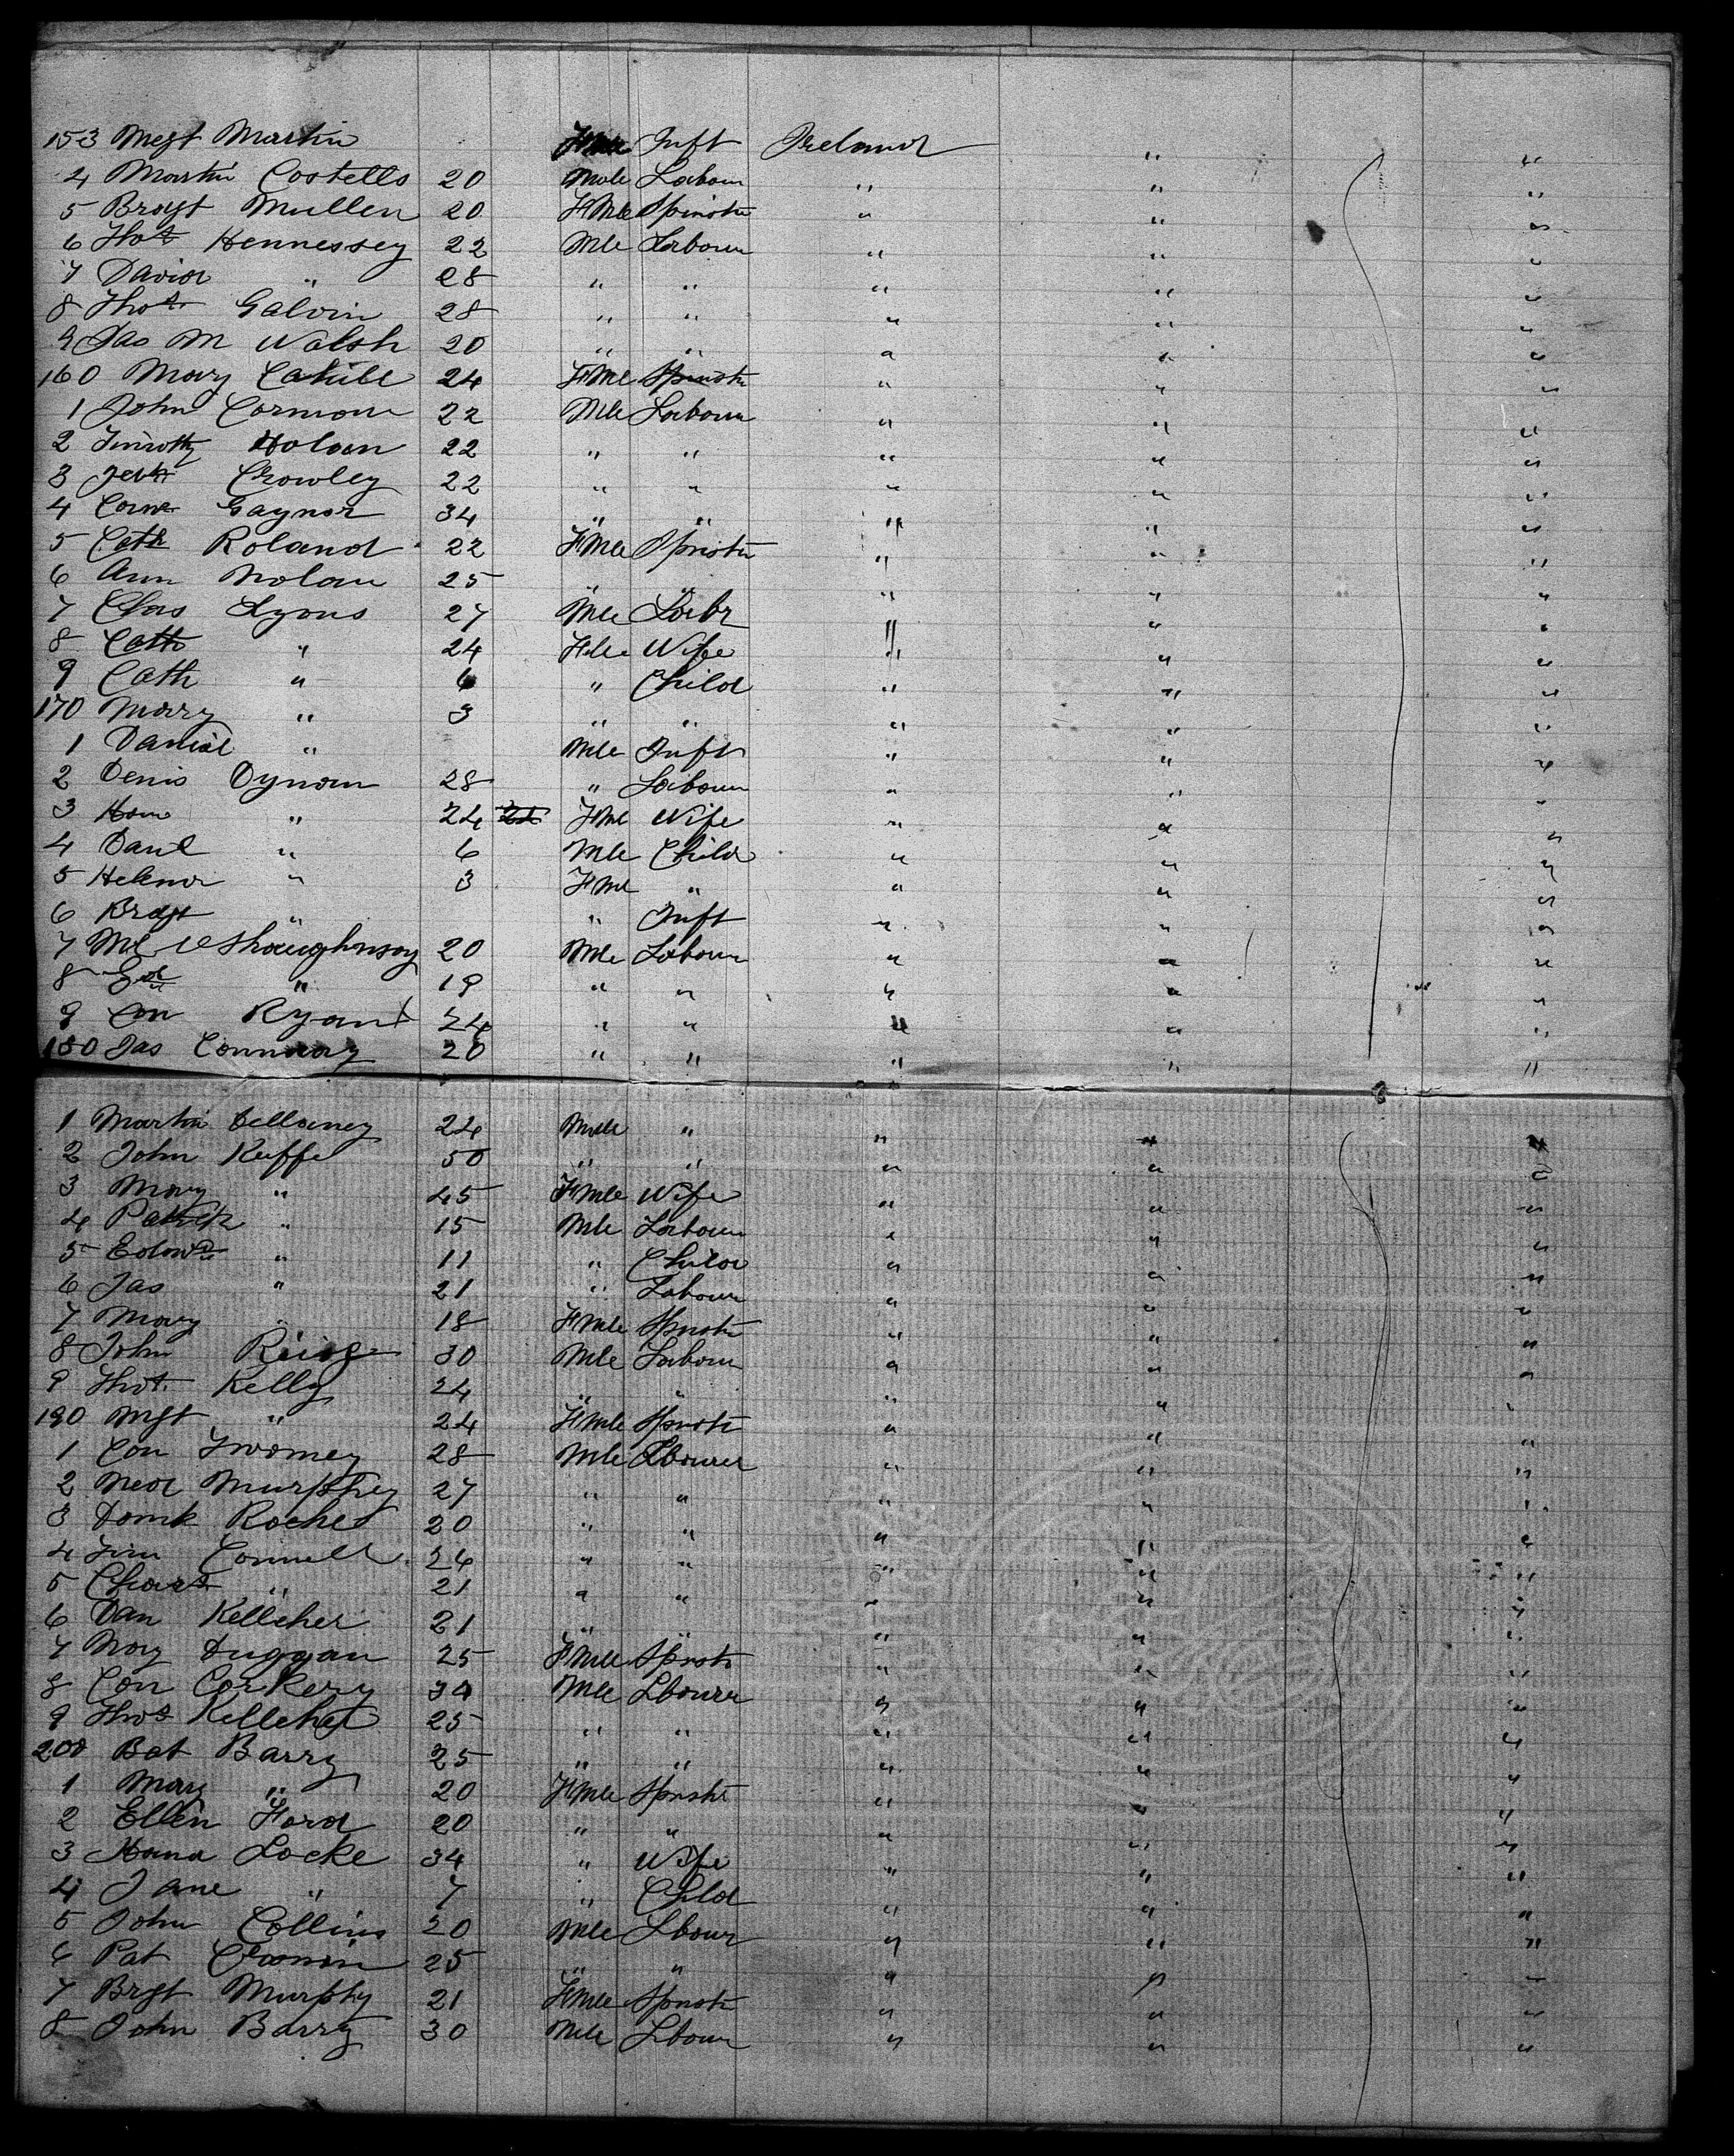 153 Megt Martin Fmle Inft Ireland " "
4 Martin Costello 20 Male Labour " " "
5 Brdgt Mullen 20 FMle Spinstr " " "
6 Thos Hennessey 22 Mle Labour " " "
7 David " 28 " " " " "
8 Thos Galvin 28 " " " " "
9 Jas M Walsh 20 " " " " "
160 Mary Cahill 24 FMle Spinstr " " "
1 John Cormon 22 Mle Labour " " "
2 Timothy Holoan 22 " " " " "
3 Crowley 22 " " " " "
4 Corns Gaynor 34 " " " " "
5 Cath Roland 22 FMle Spnstr " " "
6 Ann Nolan 25 " " " " "
7 Chas Lyons 27 Mle Labr " " "
8 Cath " 24 Fmle Wife " " "
9 Cath " 6 " Child " " "
170 Mary " 3 " " " " "
1 Daniel " Mle Inft " " "
2 Denis Dynan 28 " Labour " " "
3 Han " 24 FMl Wife " " "
4 Danl " 6 Mle Child " " "
5 Helena " 3 FMl " " " "
6 Brdgt " " Inft " " "
7 Ml OShaughnsay 20 Mle Labour " " "
8 Ed " 19 " " " " "
9 Con Ryan 24 " " " " "
180 Jas Connway 20 " " " " "
1 Martin Dellaney 24 Male " " " "
2 John Keffe 50 " " " " "
3 Mary " 45 FMle Wife " " "
4 Patrick " 15 Mle Labour " " "
5 Edwd " 11 " Child " " "
6 Jas " 21 " Labour " " "
7 Mary " 18 FMle Spnstr " " "
8 John 30 Mle Labour " " "
9 Thos Kelly 24 " " " " "
190 Mgt " 24 FMle Spnstr " " "
1 Con Twomey 28 Mle Lbourer " " "
2 Ned Murphy 27 " " " " "
3 Domk Roche 20 " " " " "
4 Tim Connell 24 " " " " "
5 Chars " 21 " " " " "
6 Dan Kelleher 21 " " " " "
7 Mary Duggan 25 FMle Spnstr " " "
8 Con Corkery 34 Mle Lbourer " " "
9 Thos Kelleher 25 " " " " "
200 Bat Barry 25 " " " " "
1 Mary " 20 FMle Spnstr " " "
2 Ellen Ford 20 " " " " "
3 Hana Locke 34 " Wife " " "
4 Jane " 7 " Child " " "
5 John Collins 20 Mle Lbour " " "
6 Pat Cronin 25 " " " " "
7 Brgt Murphy 21 FMle Spnstr " " "
8 John Barry 30 Mle Lbour " " "